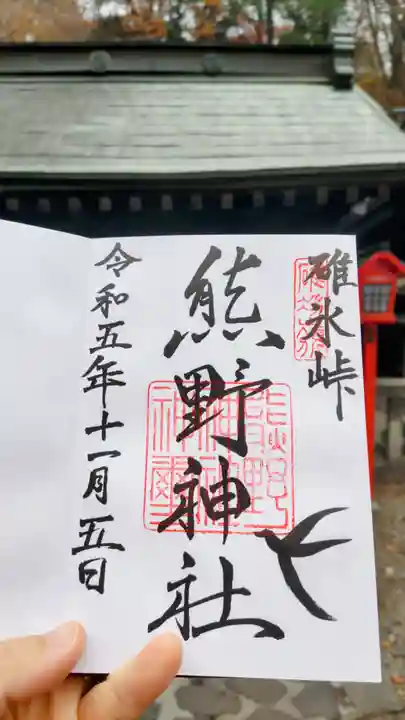 碓氷峠
熊野神社
令和五年十一月五日